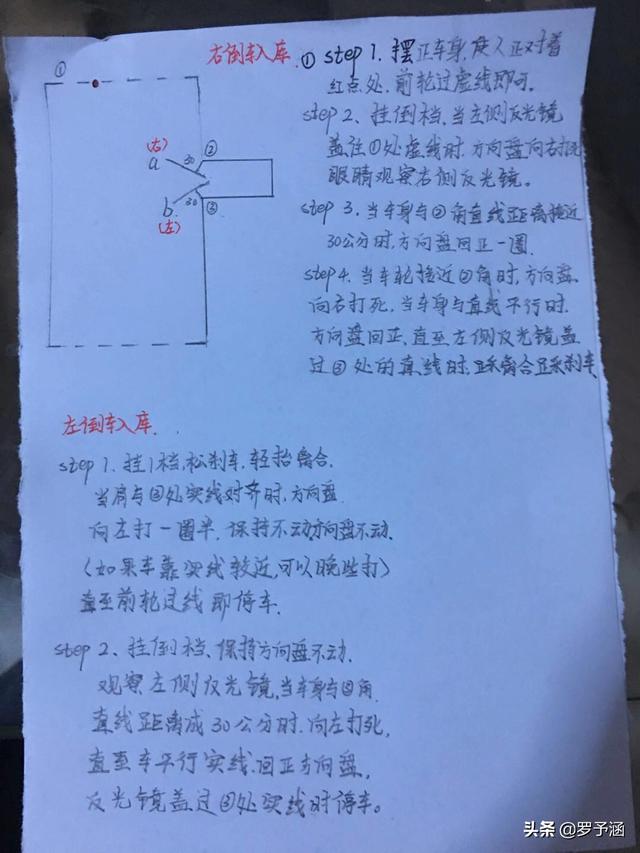 右倒车入库. ① step 1. 摆正车身,使人正对着
红点处,前轮过虚线即可。
step 2、挂倒档,当左侧反光镜
盖住①处虚线时,方向盘向右打死
眼睛观察右侧反光镜。
step 3. 当车身与②角直线距离接近
30公分时,方向盘回正一圈.
step 4. 当车轮接近②角时,方向盘
向右打死,当车身与直线平行时
方向盘回正,直至左侧反光镜盖
过③处的直线时,踩离合踩刹车
①
(右)
a
30
②
b
30
③
(左)
左倒车入库.
step 1. 挂1档,松刹车,轻抬离合.
当肩与②处实线对齐时,方向盘
向左打一圈半.保持不动方向盘不动.
(如果车靠实线较近,可以晚些打)
直至前轮过线即停车.
step 2、挂倒档、保持方向盘不动.
观察左侧反光镜,当车身与③角
直线距离成30公分时.向左打死,
直至车平行实线.回正方向盘,
反光镜盖过③处实线时停车。
头条 @罗予涵